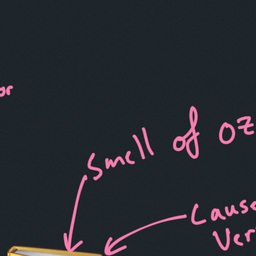 or
Smell of oz
Cause
Ver